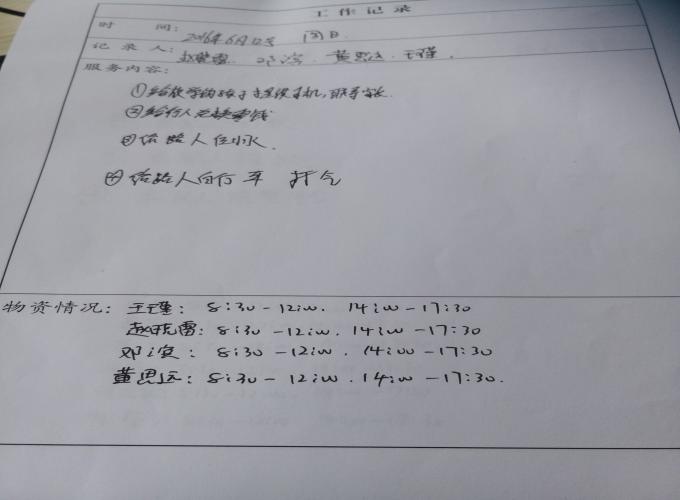 工作记录
时 间: 2016年6月12号 周日
记录人: 赵晓雷. 邓滨. 黄思远. 王瑾.
服务内容:
①给放学的孩子提供手机,联系家长.
②给行人兑换零钱
③给路人倒水.
④给路人自行车 打气
物资情况: 王瑾: 8:30-12:00. 14:00-17:30
赵晓雷: 8:30-12:00. 14:00-17:30
邓滨: 8:30-12:00. 14:00-17:30
黄思远: 8:30-12:00. 14:00-17:30.